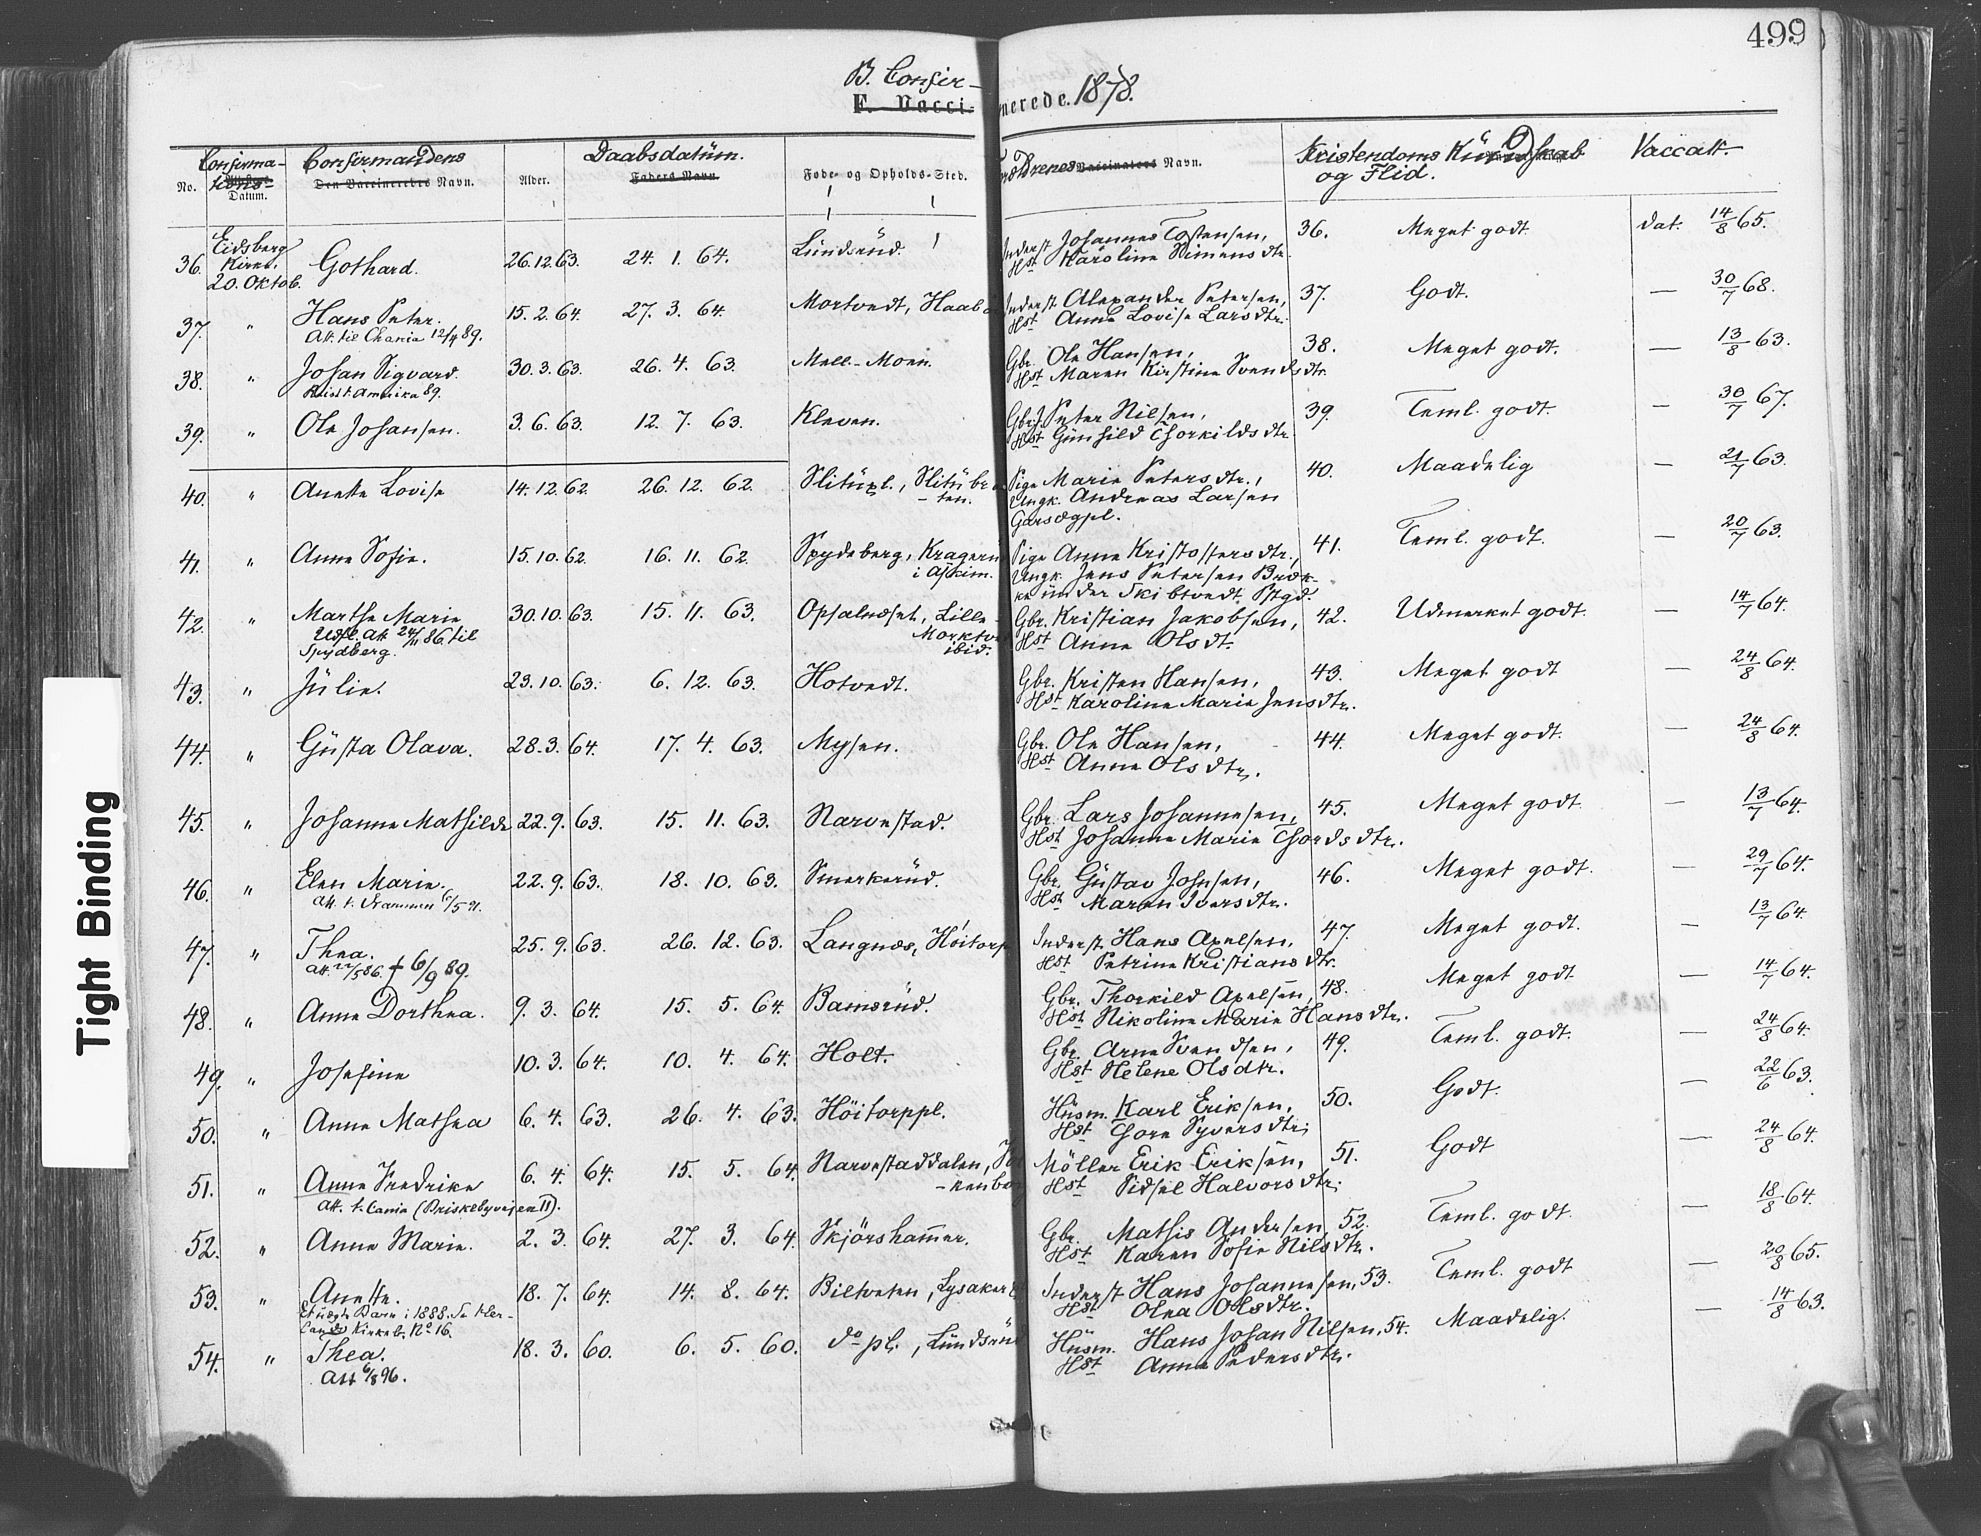 499
B. Confir-merede. 1878.
F. Vacci-
No.
Confirma-tions-Datum.
Confirmandens
Den Vaccineredes Navn.
Alder.
Daabsdatum.
Faders Navn.
Føde- og Opholds-Sted.
Forældrenes Vaccinators Navn.
Kristendoms Kundskab og Flid.
Vaccatt.
36. Eidsberg Kirke, 20. Oktob. Gothard. 26.12.63. 24. 1. 64. Lundsrud. Inderst Johannes Tostensen, 36. Meget godt. dat. 14/8 65.
Hst Karoline Simensdtr.
37. " Hans Peter. 15.2.64. 27. 3. 64. Mortvedt, Haab Inderst Alexander Petersen, 37. Godt. — 30/7 68.
Att. til Chania 12/4 89. Hst Anne Lovise Larsdtr.
38. " Johan Sigvard. 30.3.63. 26. 4. 63. Mell-Moen. Gbr. Ole Hansen, 38. Meget godt. — 13/8 63.
Reist t. Amerika 89. Hst Maren Kirstine Svendsdtr.
39. " Ole Johansen. 3. 6. 63. 12. 7. 63. Kleven. Gbr. Peter Nilsen, 39. Teml. godt. — 30/7 67.
Hst Gunhild Thorkildsdtr.
40. " Anette Lovise 14.12.62. 26. 12. 62. Slitupl., Slitubr Pige Marie Petersdtr., 40. Maadelig — 21/7 63.
-ten. Ungk. Andreas Larsen
Garsægpl.
41. " Anne Sofie. 15.10.62. 16. 11. 62. Spydeberg, Krageru Pige Anne Kristoffersdtr., 41. Teml. godt. — 20/7 63.
i Askim. Ungk. Jens Petersen Bræk-
ke under Skibtvedt Pstgd.
42. " Marthe Marie 30.10.63. 15. 11. 63. Opsalnæset, Lille- Gbr. Kristian Jakobsen, 42. Udmerket godt. — 14/7 64.
Udfl. Att 24/11 86 til Morktve Hst Anne Olsdt.
Spydberg. ibid.
43. " Julie. 23.10.63. 6. 12. 63. Hotvedt. Gbr. Kristen Hansen, 43. Meget godt — 24/8 64.
Hst Karoline Marie Jensdtr.
44. " Gusta Olava. 28.3.64. 17. 4. 63. Mysen. Gbr. Ole Hansen, 44. Meget godt. — 24/8 64.
Hst Anne Olsdtr.
45. " Johanne Mathilde 22.9.63. 15. 11. 63. Narvestad. Gbr. Lars Johannesen, 45. Meget godt — 13/7 64.
Hst Johanne Marie Thordsdtr.
46. " Elen Marie. 22.9.63. 18. 10. 63. Smerkerud. Gbr. Gustav Johnsen, 46. Meget godt. — 29/7 64.
Att. t. Drammen 6/5 91. Hst Maren Iversdtr.
47. " Thea. 25. 9. 63. 26. 12. 63. Langnæs, Höitorp Inderst Hans Axelsen, 47. Meget godt. — 13/7 64.
Att. 22/5 86. † 6/9 89. Hst Petrine Kristiansdtr.
48. " Anne Dorthea. 9. 3. 64. 15. 5. 64. Bamsrud. Gbr. Thorkild Axelsen, 48. Meget godt — 14/7 64.
Hst Nikoline Marie Hansdtr.
49. " Josefine 10. 3. 64. 10. 4. 64. Holt. Gbr. Arne Svendsen, 49. Teml. godt. — 24/8 64.
Hst Helene Olsdtr.
50. " Anne Mathea 6. 4. 63. 26. 4. 63. Höitorppl. Husm. Karl Eriksen, 50. Godt. — 22/6 63.
Hst Thore Syversdtr.
51. " Anne Fredrike 6. 4. 64. 15. 5. 64. Narvestaddalen, Möller Erik Eriksen, 51. Godt — 24/8 64.
Att. t. Cania (Briskebyveien 11). -kenberg Hst Sidsel Halvorsdtr.
52. " Anne Marie. 2. 3. 64. 27. 3. 64. Skjörshammer. Gbr. Mathis Andersen, 52. Teml. godt. — 18/8 64.
Hst Karen Sofie Nilsdtr.
53. " Anette. 18. 7. 64. 14. 8. 64. Biltveten, Lysaker Inderst Hans Johannesen, 53. Teml. godt — 20/8 65.
Et uægte Barn i 1888. Se Hær- Hst Olea Olsdtr.
lands Kirkeb. No 16.
54. " Thea. 18. 3. 60. 6. 5. 60. do pl., Lundsrud Husm. Hans Johan Nilsen, 54. Maadelig. — 14/8 63.
Att 6/8 96. Hst Anne Pedersdtr.
Tight Binding